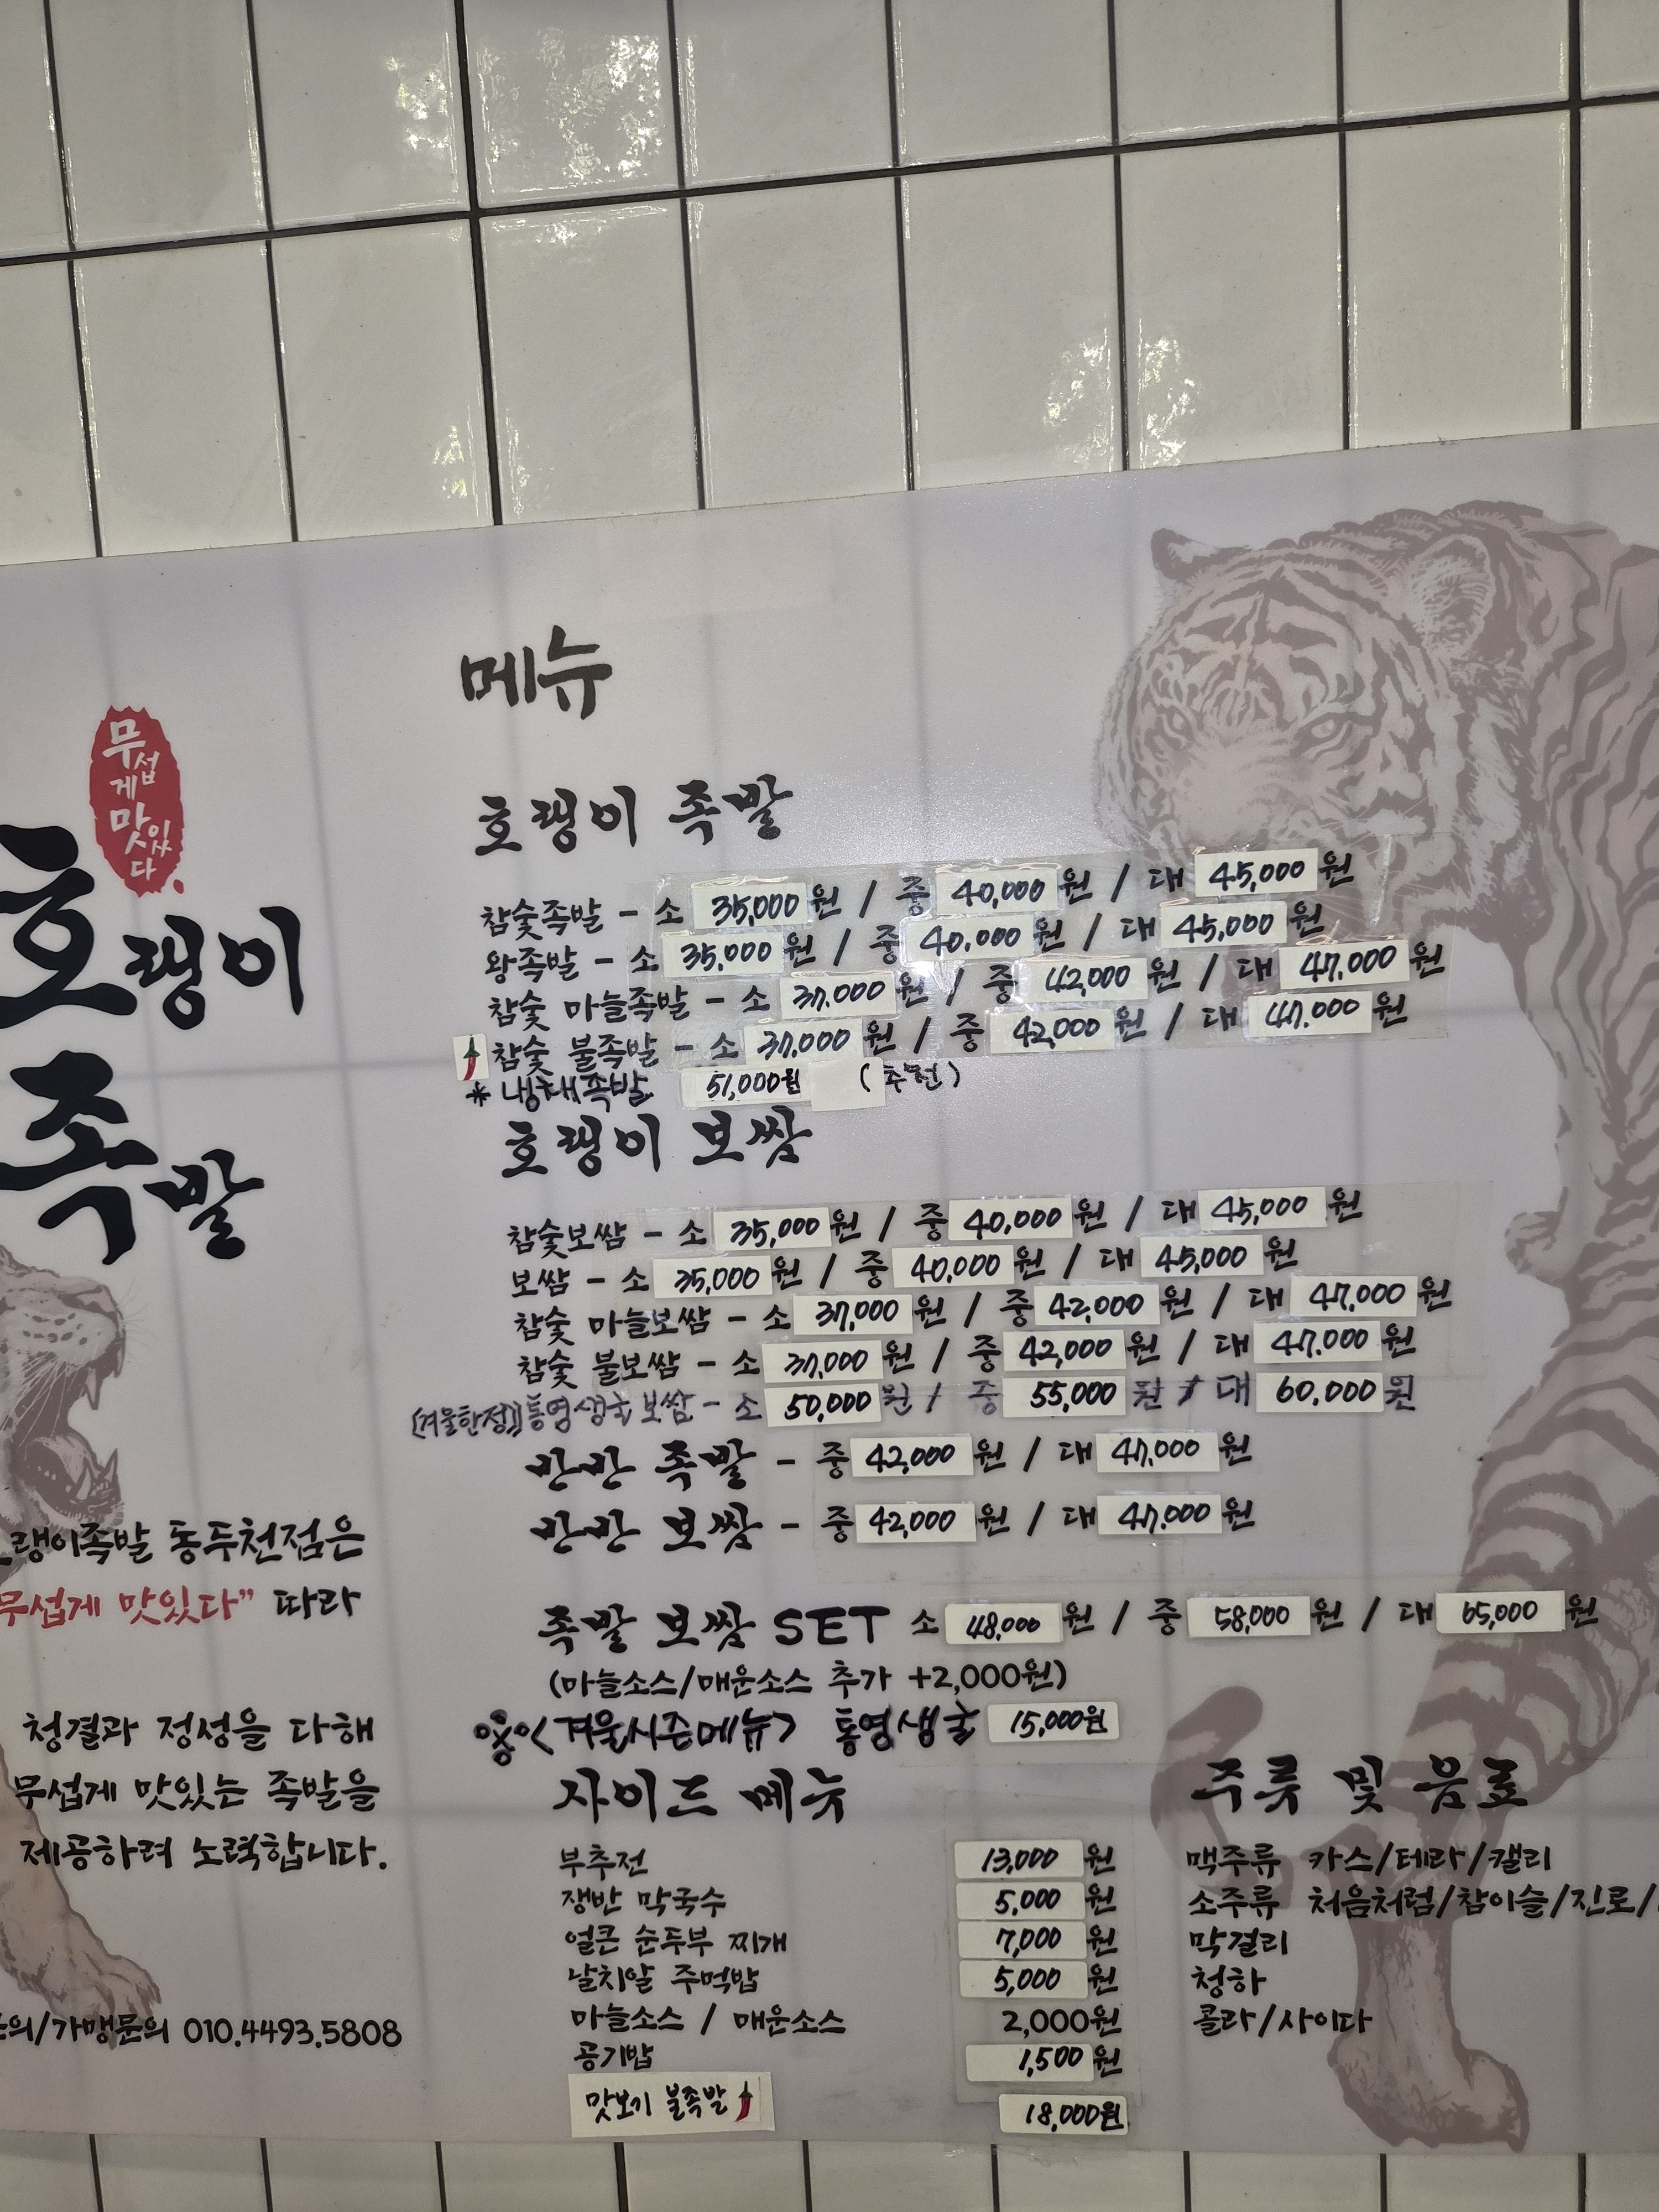 무섭게 맛있다.
호랭이
족발
랭이족발 동두천점은
무섭게 맛있다" 따라
청결과 정성을 다해
무섭게 맛있는 족발을
제공하려 노력합니다.
의/가맹문의 010.4493.5808
메뉴
호랭이 족발
참숯족발 - 소 35,000원 / 중 40,000원 / 대 45,000원
왕족발 - 소 35,000원 / 중 40,000원 / 대 45,000원
참숯 마늘족발 - 소 37,000원 / 중 42,000원 / 대 47,000원
참숯 불족발 - 소 37,000원 / 중 42,000원 / 대 47,000원
* 냉채족발 51,000원 (추천)
호랭이 보쌈
참숯보쌈 - 소 35,000원 / 중 40,000원 / 대 45,000원
보쌈 - 소 35,000원 / 중 40,000원 / 대 45,000원
참숯 마늘보쌈 - 소 37,000원 / 중 42,000원 / 대 47,000원
참숯 불보쌈 - 소 37,000원 / 중 42,000원 / 대 47,000원
(겨울한정) 통영생굴보쌈 - 소 50,000원 / 중 55,000원 / 대 60,000원
반반 족발 - 중 42,000원 / 대 47,000원
반반 보쌈 - 중 42,000원 / 대 47,000원
족발 보쌈 SET 소 48,000원 / 중 58,000원 / 대 65,000원
(마늘소스/매운소스 추가 +2,000원)
<겨울시즌메뉴> 통영생굴 15,000원
사이드 메뉴
부추전 13,000원
쟁반 막국수 5,000원
얼큰 순두부 찌개 7,000원
날치알 주먹밥 5,000원
마늘소스 / 매운소스 2,000원
공기밥 1,500원
맛보기 불족발 18,000원
주류 및 음료
맥주류 카스/테라/캘리
소주류 처음처럼/참이슬/진로/
막걸리
청하
콜라/사이다